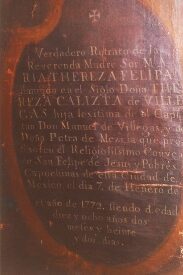 Verdadero Retrato de la
Reverenda Madre Sor MA
RIA THEREZA FELIPA
llamada en el Siglo Doña THE
REZA CALIXTA de VILLE
GAS hija lexitima de el Capi
tan Don Manuel de Villegas, y de
Doña Petra de Mexia que pro
fesó en el Religiosissimo Conve
de San Felipe de Jesus y Pobres
Capuchinas de esta Ciudad de
Mexico el dia 7 de Henero de
el año de 1774 siendo de edad
diez y ocho años dos
meses y
y dos dias.